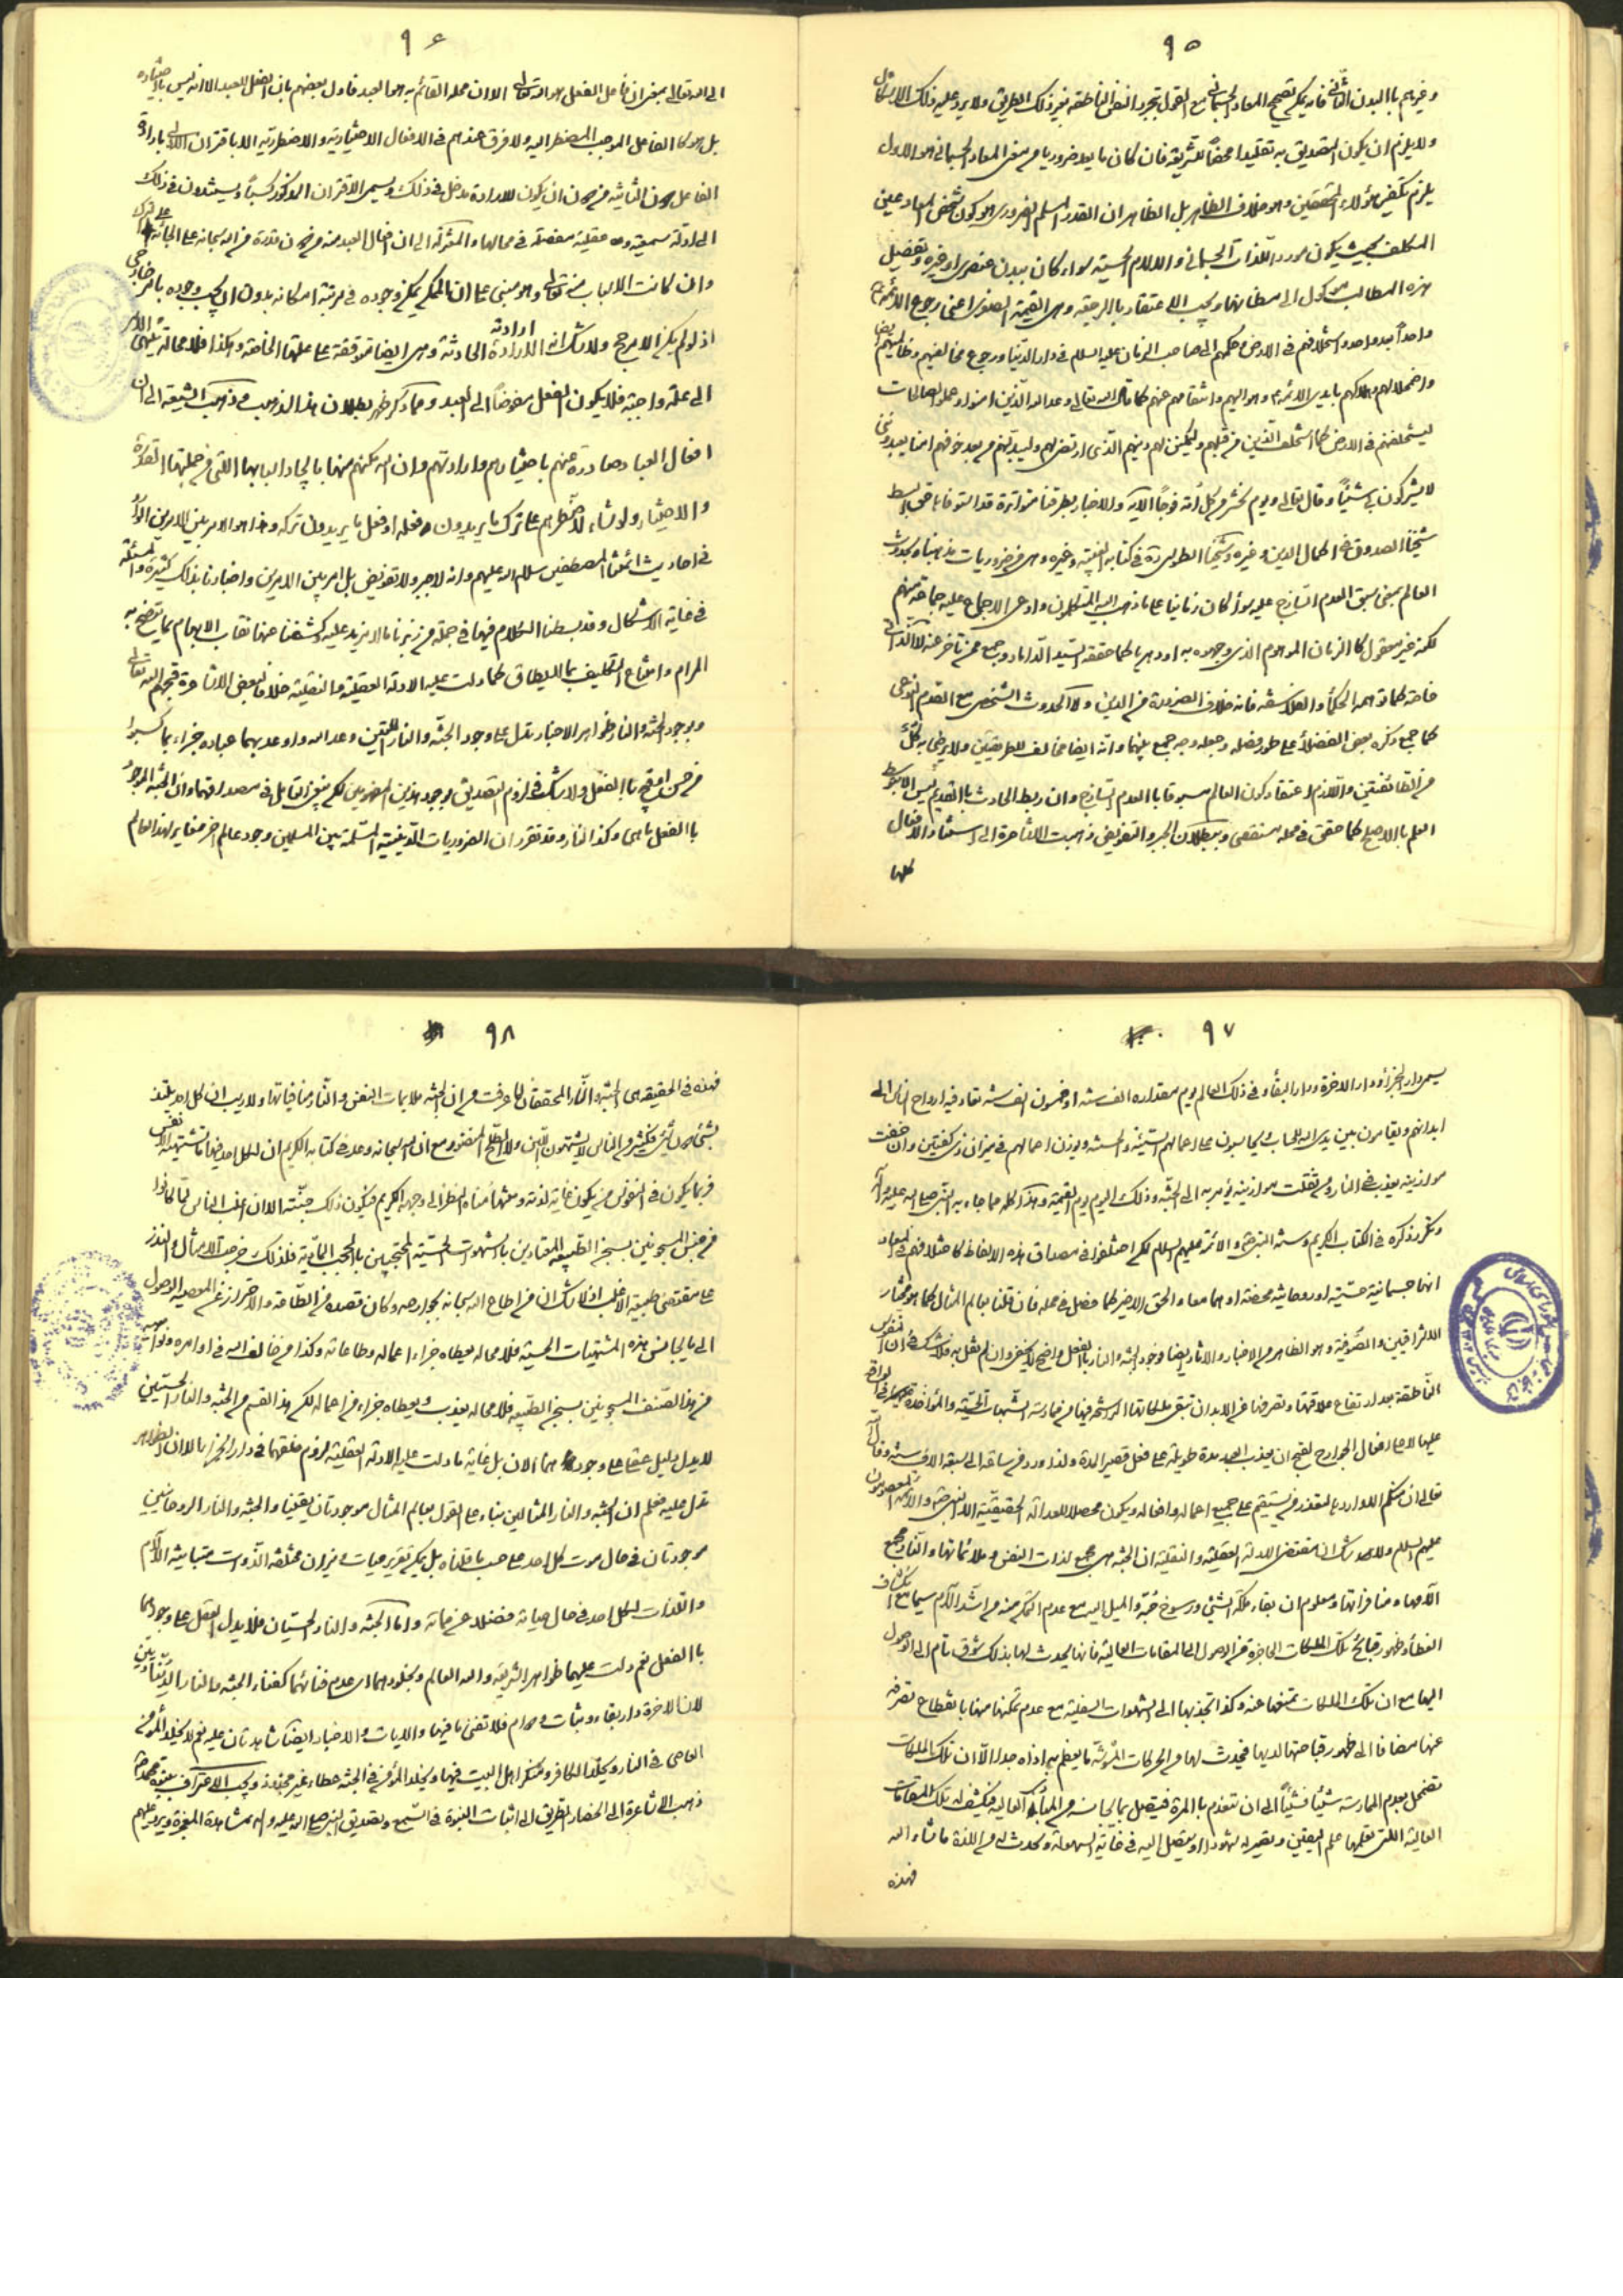 ٩٥
وغيرهم بالبدن الثاني فانه يمكن تصحيح المعاد الجسماني مع القول بتجرد النفس الناطقة بغير ذلك الطريق ولا يرد عليه ذلك الاشكال
ولا يلزم ان يكون التصديق به تقليدا محضا للشريعة فان كان ما يعد ضروريا من معنى المعاد الجسماني هو الاول
يلزم تكفير هؤلاء المحققين وهو خلاف الظاهر بل الظاهر ان القدر المسلم الضروري هو كون شخص المعاد عين
المكلف بحيث يكون مورد اللذات الجسماني والآلام الحسية سواء كان ببدن عنصري او غيره وتفصيل
هذه المطالب موكول الى مظانها ويجب الاعتقاد بالرجعة وهي القيمة الصغرى اعني رجوع الائمة
واحدا بعد واحد واستخلافهم في الارض وحكمهم الى صاحب الزمان عليه السلام في دار الدنيا ورجوع مخالفيهم وظالميهم ايضا
واضمحلالهم وهلاكهم بايدي الائمة ومواليهم وانتقامهم عنهم كما قال الله تعالى وعد الله الذين امنوا وعملوا الصالحات
ليستخلفنهم في الارض كما استخلف الذين من قبلهم وليمكنن لهم دينهم الذي ارتضى لهم وليبدلنهم من بعد خوفهم امنا يعبدونني
لا يشركون بي شيئا وقال تعالى ويوم نحشر من كل امة فوجا الآية والاخبار بطرقنا متواترة قد استوفاها في البسط
شيخنا الصدوق في اكمال الدين وغيره وشيخنا الطوسي ره في كتابه الغيبة وغيره وهي من ضروريات مذهبنا وبحدوث
العالم بمعنى سبق العدم الساذج عليه سواء كان زمانيا على ما ذهب اليه المتكلمون وادعى الاجماع عليه جماعة منهم
لكنه غير معقول كالزمان الموهوم الذي وجهوه به او دهريا كما حققه السيد الداماد وجمع ممن تأخر عنه لا الذاتي
خاصة كما توهمه الحكماء والفلاسفة فانه خلاف الضرورة من الدين ولا الحدوث الشخصي مع القدم النوعي
كما جمع ذكره بعض الفضلاء على طور فضله وجعله وجه جمع بينهما وانه ايضا مخالف للطريقين ولا يرضى به كل
من الطائفتين واللازم اعتقاد كون العالم مسبوقا بالعدم الساذج وان ربط الحادث بالقديم ليس الا بتوسط
العلم بالاصلح كما حقق في محله مستقصى وببطلان الجبر والتفويض ذهبت الاشاعرة الى استناد الافعال
كلها
٩٦
الى الله تعالى بمعنى ان فاعل الفعل هو الله تعالى الا ان محله القائم به هو العبد فاول بعضهم بان الفعل للعبد الا انه ليس باختياره
بل هو كالفاعل الموجب المضطر اليه ولا فرق عندهم في الافعال الاختيارية والاضطرارية الا باقتران الاولى بارادة
الفاعل دون الثانية من دون ان يكون للارادة مدخل في ذلك ويسمى الاقتران المذكور كسبا ويستندون في ذلك
الى ادلة سمعية و عقلية مفصلة في محالها والمعتزلة الى ان افعال العبد منه من دون قدرة من الله سبحانه على الجائه على الترك
وان كانت الاسباب منه تعالى وهو مبني على ان الممكن يمكن وجوده في مرتبة امكانه بدون ان يجب وجوده بامر خارجي
اذ لو لم يكن الا مرجح ولا شك انه الارادة الحادثة وهي ايضا متوقفة على علتها الخاصة وهكذا فلا محالة ينتهي الامر
ارادته
الى علة واجبة فلا يكون الفعل مفوضا الى العبد ومما ذكر ظهر بطلان هذا المذهب وذهبت الشيعة الى ان
افعال العباد صادرة عنهم باختيارهم وارادتهم وان الله يمكنهم منها بايجاد اسبابها التي من جملتها القدرة
والاختيار ولو شاء لاضطرهم على ترك ما يريدون فعله او فعل ما يريدون تركه وهذا هو الامر بين الامرين الوارد
في احاديث ائمتنا المصطفين سلام الله عليهم وانه لا جبر ولا تفويض بل امر بين الامرين واخبارنا بذلك كثيرة والمسئلة
في غاية الاشكال وقد بسطنا الكلام فيها في جملة من زبرنا بما لا مزيد عليه وكشفنا عنها نقاب الابهام بما يتضح به
المرام وامتناع التكليف بما لا يطاق كما دلت عليه الادلة العقلية والنقلية خلافا لبعض الاشاعرة قبحهم الله تعالى
وبوجود الجنة والنار ظواهر الاخبار تدل على وجود الجنة والنار اللتين وعد الله واوعد بهما عباده جزاء بما كسبوا
من حسن او قبح بالفعل ولا شك في لزوم التصديق بوجود هذين المفهومين لكن ينبغي التأمل في مصداقهما وان الجنة الموجودة
بالفعل ما هي وكذا النار وقد تقرر ان الضروريات الدينية المسلمة بين المسلمين وجود عالم اخر مغاير لهذا العالم
٩٧
يسمى دار الجزاء ودار الاخرة ودار البقاء وفي ذلك العالم يوم مقداره الف سنة او خمسون الف سنة تعاد فيه ارواح الناس الى
ابدانهم ويقامون بين يدي الله للحساب ويحاسبون على اعمالهم السيئة والحسنة ويوزن اعمالهم في ميزان ذي كفتين وان خفت
موازينه يعذب في النار ومن ثقلت موازينه يؤمر به الى الجنة وذلك اليوم يوم القيمة وهذا كله مما جاء به النبي صلى الله عليه وآله
وتكرر ذكره في الكتاب الكريم وسنة النبي والائمة عليهم السلام لكن اختلفوا في مصداق هذه الالفاظ كاختلافهم في المعاد
انها جسمانية حسية او روحانية محضة او هما معا والحق الاخير كما فصل في محله فان قلنا بعالم المثال كما هو مختار
الاشراقيين والصوفية وهو الظاهر من الاخبار والاثار ايضا فوجود الجنة والنار بالفعل واضح لا يخفى وان لم نقل به فلا شك في ان النفس
الناطقة بعد ارتفاع علاقتها وتصرفها عن الابدان تبقى ملكاتها الراسخة فيها من ممارسة الشهوات الحسية والمؤاخذة
عليها لا على افعال الجوارح لقبح ان يعذب العبد مدة طويلة على فعل قصير المدة ولذا ورد
تعالى ان من يستقيم على جميع اعماله وافعاله ويكون محصلا للعدالة الحقيقية الا النبي والائمة المعصومون
عليهم السلام ولا شك ان مقتضى الادلة العقلية والنقلية ان الجنة هي مجمع لذات النفس وملائماتها والنار مجمع
الامها ومنافراتها ومعلوم ان بقاء ملكة الشيء ورسوخ حبه والميل اليه مع عدم التمكن منه من اشد الآلام سيما مع انكشاف
الغطاء وظهور قبائح تلك الملكات الحاجزة عن الوصول الى المقامات العالية فانها يحدث لها بذلك شوق تام الى الوصول
اليها مع ان تلك الملكات تمنعها عنه وكذا تجذبها الى الشهوات السفلية مع عدم تمكنها منها بانقطاع تصرفه
عنها مضافا الى ظهور قباحتها لديها فيحدث لها من الحركات المشوشة ما يعظم به اذاه جدا الا ان تلك الملكات
تضمحل بعدم الممارسة شيئا فشيئا الى ان تنعدم بالمرة فيتصل بما يجانسه من المبادئ العالية فيكشف له تلك المقامات
العالية التي تعلمها علم اليقين وتصير له شهودا او يتصل اليه في غاية السهولة ويحدث له من اللذة ما شاء الله
فهذه
٩٨
فهذه في الحقيقة هي الجنة والنار المحققتان لما عرفت من ان الجنة ملايمات النفس والنار منافياتها ولا ريب ان كل احد يلتذ
بشيء دون شيء فكثير من الناس لا يشتهون اللبن ولا الطلح المنضود مع ان الله سبحانه وعد في كتابه الكريم ان لكل احد فيها ما تشتهيه الانفس
فربما يكون في النفوس من يكون غاية لذته ومنتهى مناه النظر الى وجهه الكريم فيكون ذلك جنته الا ان اغلب الناس لما كانوا
من جنس المسجونين بسجن الطبيعة المعتادين بالشهوات الحسية المحتجبين بالحجب المادية فلذلك ضربت الامثال والنذر
على مقتضى طبيعة الاغلب اذ لا شك ان من اطاع الله سبحانه بجوارحه وكان قصده من الطاعة والاحتراز عن المعصية الوصول
الى ما يجانس هذه المشتهيات الحسية فلا محالة يعطاه جزاء اعماله وطاعاته وكذا من خالف الله في اوامره ونواهيه
من هذا الصنف المسجونين بسجن الطبيعة فلا محالة يعذب ويعطاه جزاء من اعماله لكن هذا القسم من الجنة والنار الحسيتين
لا يدل دليل عقلي على وجودهما الان بل غاية ما دلت عليه الادلة العقلية لزوم خلقهما في دار الجزاء الا ان الظواهر
تدل عليه فعلم ان الجنة والنار المثاليتين بناء على القول بعالم المثال موجودتان يقينا والجنة والنار الروحانيتين
موجودتان في حال موت كل احد على حسب ما قلناه بل يمكن تقرير جنات ونيران مختلفة الذوات متباينة الآلام
واللذات لكل احد في حال حياته فضلا عن مماته واما الجنة والنار الحسيتان فلا يدل العقل على وجودهما
بالفعل نعم دلت عليهما ظواهر الشريعة والله العالم وبخلودهما اي عدم فنائهما كفناء الجنة والنار الدنياويتين
لان الاخرة دار بقاء وثبات ودوام فلا تفنى ما فيها والايات والاخبار ايضا شاهدتان عليه نعم لا يخلد المؤمن
العاصي في النار ويخلد الكافر ومنكر اهل البيت فيها ويخلد المؤمن في الجنة عطاء غير مجذوذ ويجب الاعتراف بنبوة محمد
ذهبت الاشاعرة الى انحصار الطريق الى اثبات النبوة في السمع وتصديق النبي صلى الله عليه وآله بمشاهدة المعجزة ويرد عليهم